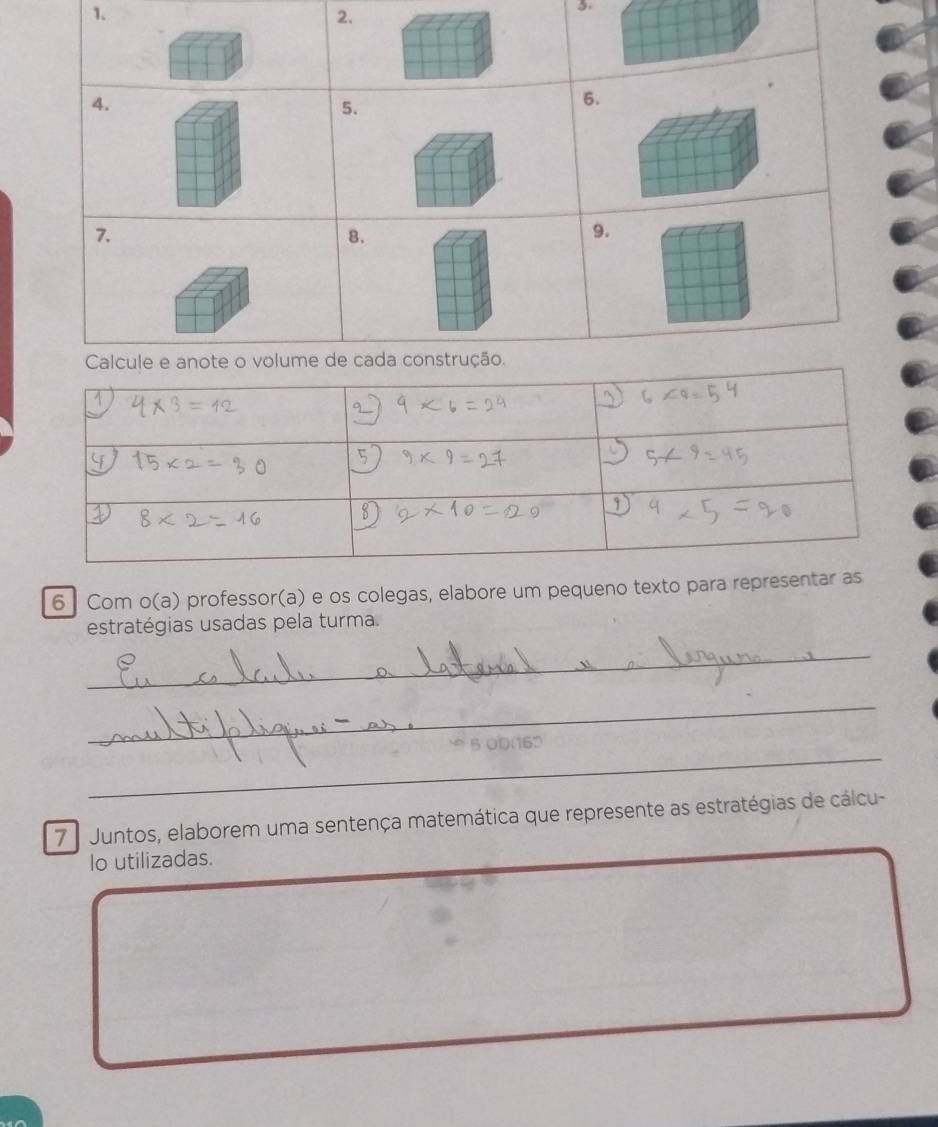 1.
2.
3.
4.
5.
6.
7.
8.
9.
Calcule e anote o volume de cada construção.
1) 4×3=12
2) 4×6=24
3) 6×9=54
4) 15×2=30
5) 9×9=27
5×9=45
7) 8×2=16
8) 2×10=20
9) 4×5=20
6 Com o(a) professor(a) e os colegas, elabore um pequeno texto para representar as
estratégias usadas pela turma.
Eu calculei a lateral e a largura e
multipliquei-as.
7 Juntos, elaborem uma sentença matemática que represente as estratégias de cálcu-
lo utilizadas.